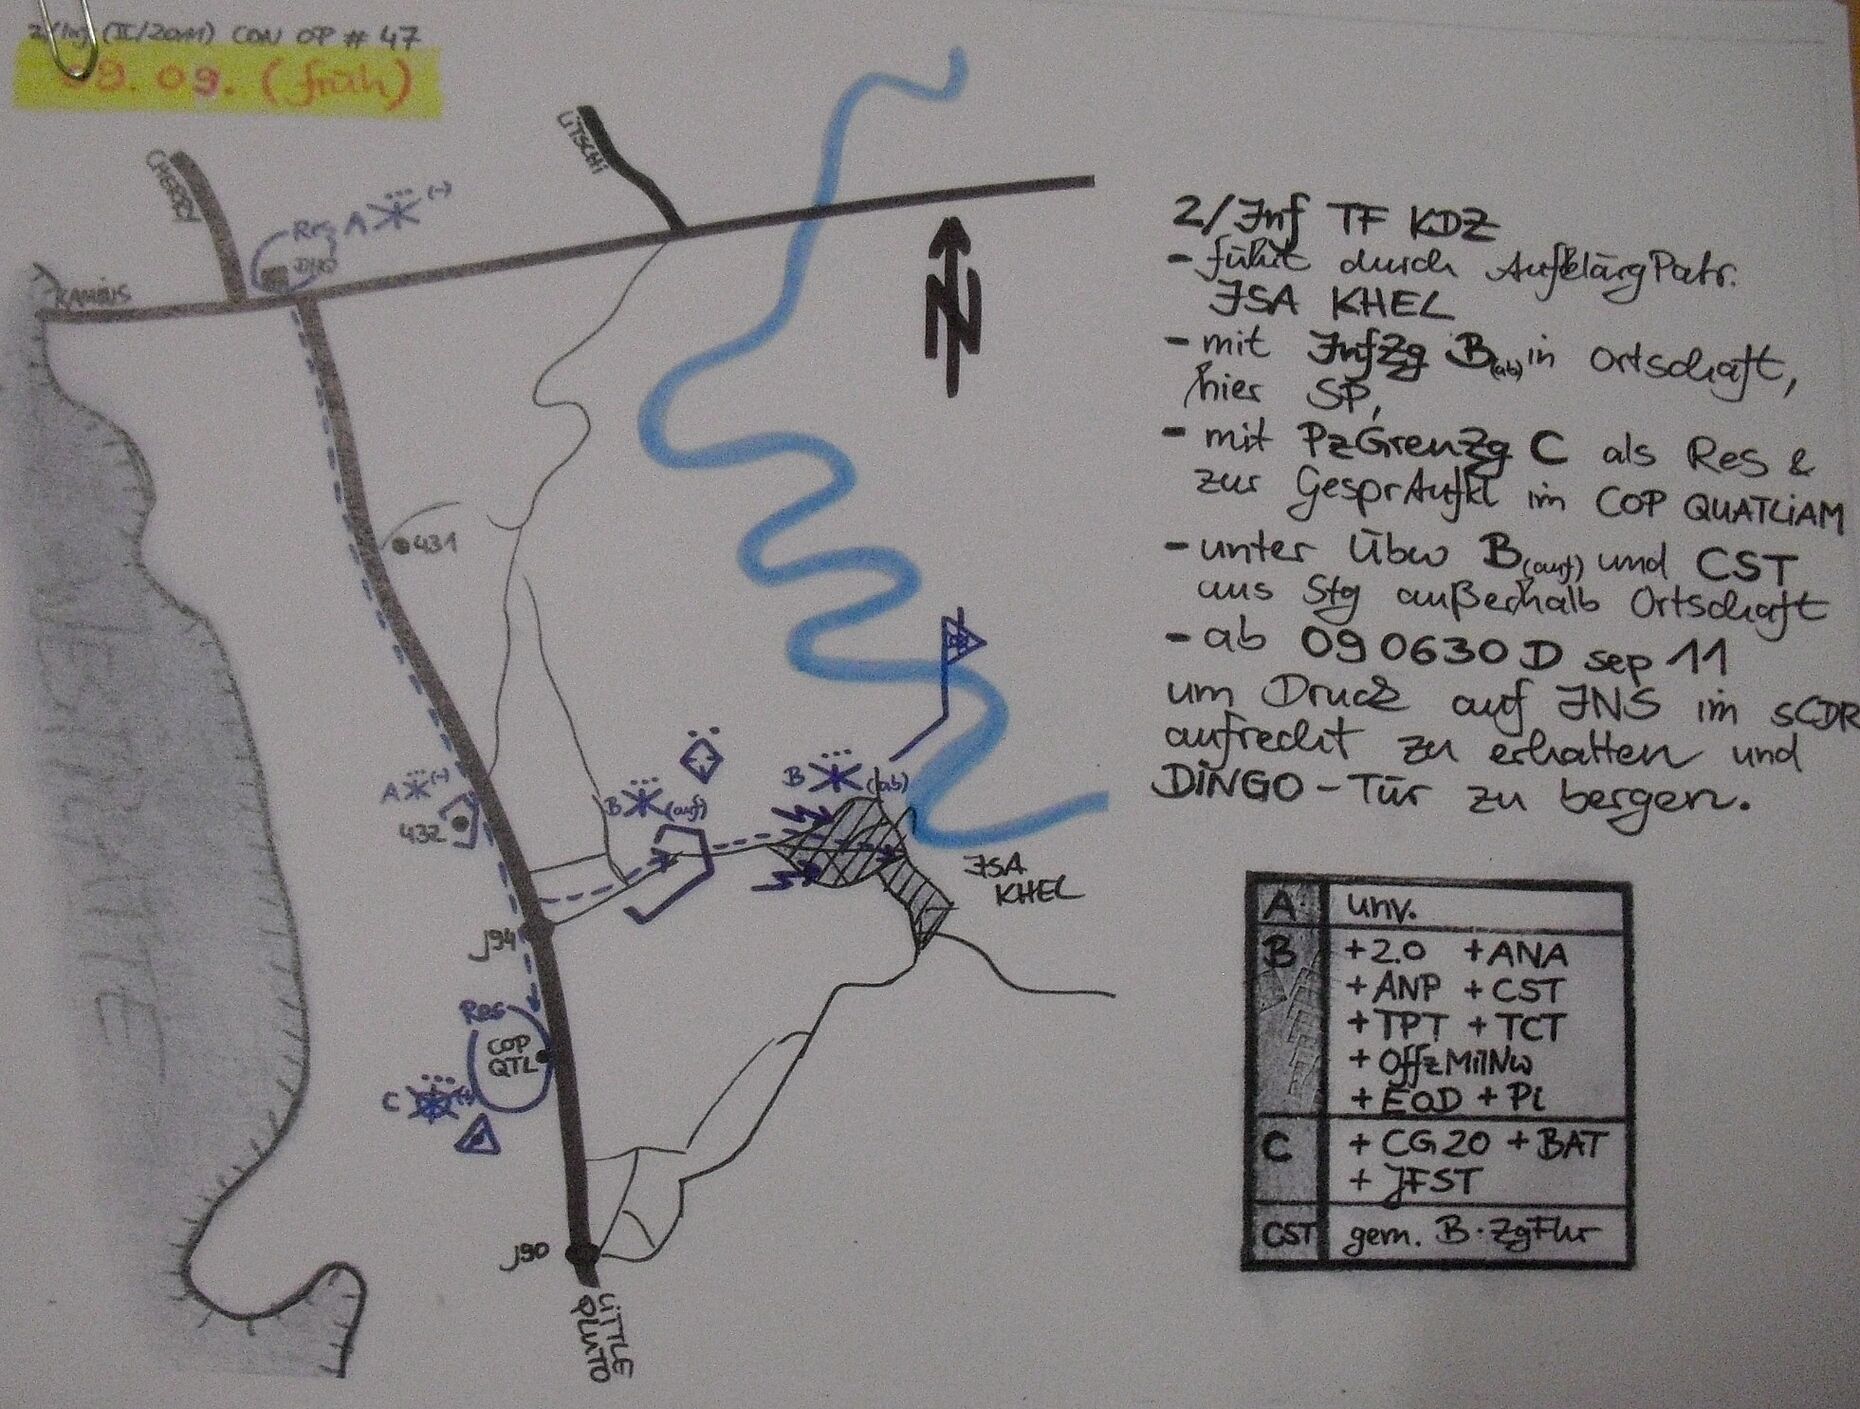 2/Inf (II/2011) CON OP # 47
09. 09. (früh)
CHERRY
LITSCHI
KAMINS
Res A (-)
DHQ
431
A (-)
432
B (auf)
B (ab)
ISA
KHEL
J94
Res
COP
QTL
C (+)
J90
LITTLE
PLUTO
WESTPLATTE
N
2/Inf TF KDZ
- führt durch AufklärgPatr.
ISA KHEL
- mit InfZg B(ab) in Ortschaft,
hier SP,
- mit PzGrenZg C als Res &
zur GesprAufkl im COP QUATLIAM
- unter Übw B(auf) und CST
aus Stg außerhalb Ortschaft
- ab 090630D sep 11
um Druck auf INS im SCDR
aufrecht zu erhalten und
DINGO-Tür zu bergen.
A unv.
B +2.0 +ANA
+ANP +CST
+TPT +TCT
+OffzMilNw
+EOD +Pi
C +CG20 +BAT
+JFST
CST gem. B-ZgFhr